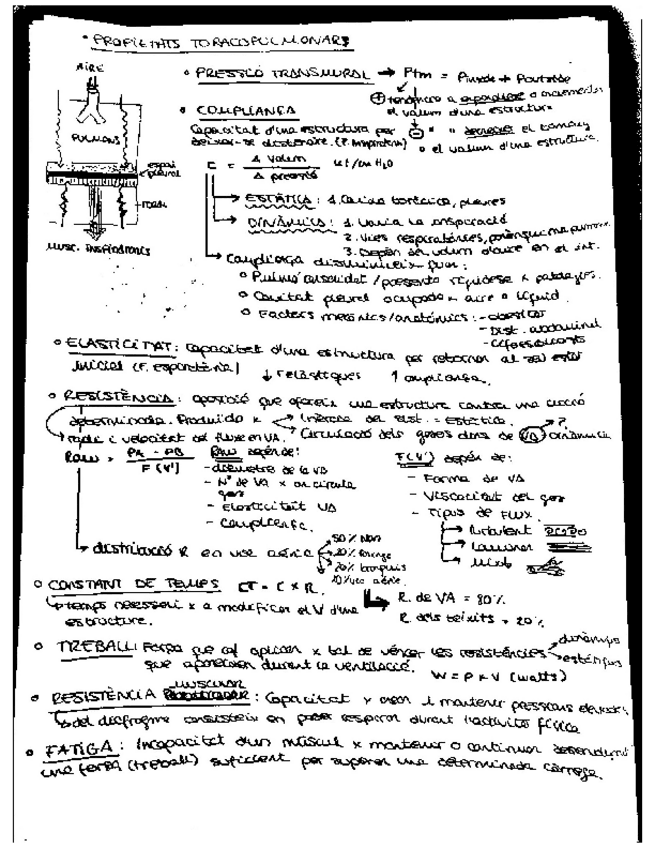 • PROPIETATS TORACOPULMONARS
AIRE
PULMONS
espai pleural
MUSC. INSPIRATORIS
• PRESSIÓ TRANSMURAL → Ptm = Pinside + Poutside
⊕ tendència a expandirse o incrementar el volum d'una estructura
⊖ " " decreixer el tamany o el volum d'una estructura.
• COMPLIANÇA
Capacitat d'una estructura per deixar-se distendre. (F. Inspiratoria)
C = Δ Volum / Δ pressió Lt/cm H2O
→ ESTÀTICA: 1. Caixa toràcica, pleures
→ DINÀMICA: 1. Varia la inspiració
2. Vies respiratòries, parènquima pulmonar
3. Depèn del volum d'aire en el int.
→ Compliança disminueix quan:
o Pulmó consolidat / presenta rigidesa x patologies.
o Cavitat pleural ocupada x aire o líquid.
o Factors mecànics/anatòmics: - obesitat
- Dist. abdominal
- Cifoescoliosis
o ELASTICITAT: Capacitat d'una estructura per retornar al seu estat
inicial (F. espiratòria) ↓ r elàstiques ↑ compliança.
o RESISTÈNCIA: oposició que ofereix una estructura contra una acció
determinada. Produïda x Inèrcia del sist. = Estàtica.
Circulació dels gasos dins de VA → ? Dinàmica
→ radi i velocitat del fluxe en VA.
Raw = PA - PB / F (V')
Raw depèn de:
- diàmetre de la VA
- Nº de VA x on circula gas
- Elasticitat VA
- Compliança.
F(V') depèn de:
- Forma de VA
- Viscocitat del gas
- Tipus de FLUX.
→ Turbulent
→ Laminar
→ Mixte
→ distribució R en vies aèries
50% Nas
20% faringe
20% bronquis
10% vies aèries.
o CONSTANT DE TEMPS CT = C x R.
→ R. de VA = 80%
R. dels teixits = 20%
→ temps necessari x a modificar el V d'una
estructura.
o TREBALL: Força que cal aplicar x tal de vèncer les resistències
→ dinàmiques
→ estàtiques
que apareixen durant la ventilació. W = P x V (watts)
o RESISTÈNCIA MUSCULAR: Capacitat x crear i mantenir pressions elevades
→ del diafragma consisteix en poder respirar durant l'activitat física
o FATIGA: Incapacitat d'un múscul x mantenir o continuar desenvolupant
una força (treball) suficient per superar una determinada càrrega.